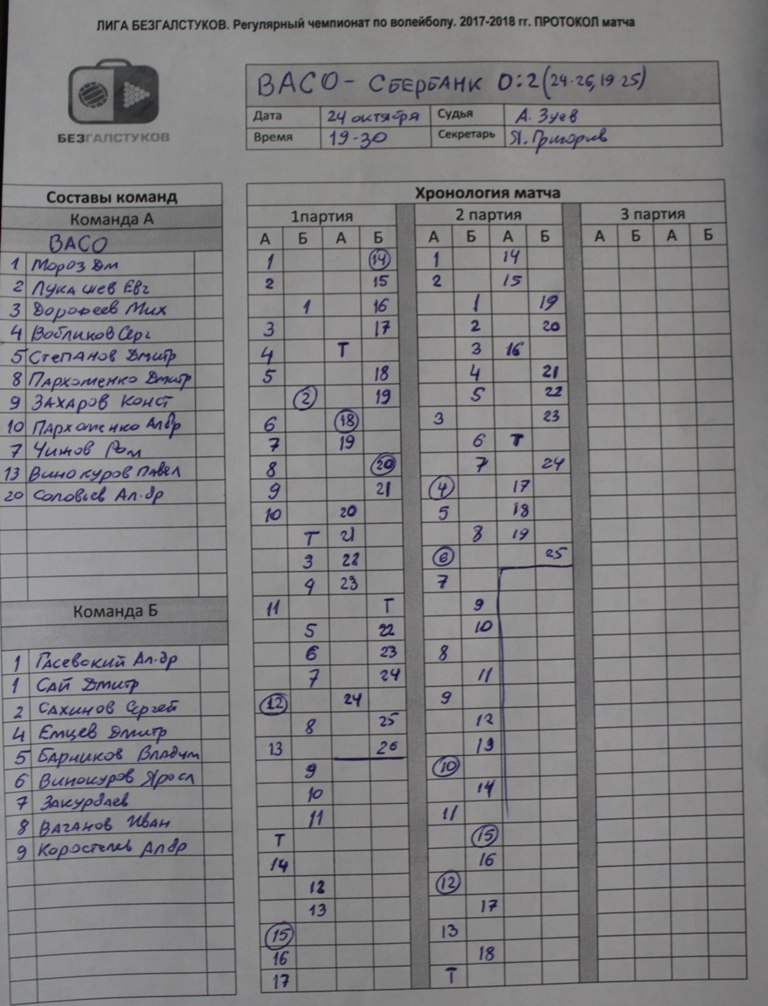 ЛИГА БЕЗГАЛСТУКОВ. Регулярный чемпионат по волейболу. 2017-2018 гг. ПРОТОКОЛ матча
БЕЗГАЛСТУКОВ
ВАСО - СБЕРБАНК 0:2 (24-26, 19-25)
Дата 24 октября Судья А. Зуев
Время 19-30 Секретарь Я. Григорьев
Составы команд
Команда А
ВАСО
1 Мороз Дм
2 Лукашев Евг
3 Дорофеев Мих
4 Вобликов Серг
5 Степанов Дмитр
8 Пархоменко Дмитр
9 Захаров Конст
10 Пархоменко Ал-др
7 Чижов Ром
13 Винокуров Павел
20 Соловьев Ал-др
Команда Б
1 Гасевский Ал-др
1 Сай Дмитр
2 Сахинов Сергей
4 Емцев Дмитр
5 Барников Владим
6 Винокуров Яросл
7 Закурдаев
8 Ваганов Иван
9 Коростелев Ал-др
Хронология матча
1партия 2 партия 3 партия
А Б А Б А Б А Б А Б А Б
1 14 1 14
2 15 2 15
1 16 1 19
3 17 2 20
4 Т 3 16
5 18 4 21
2 19 5 22
6 18 3 23
7 19 6 Т
8 20 7 24
9 21 4 17
10 20 5 18
Т 21 8 19
3 22 6 25
4 23 7
11 Т 9
5 22 10
6 23 8
7 24 11
12 24 9
8 25 12
13 26 13
9 10
10 14
11 11
Т 15
14 16
12 12
13 17
15 13
16 18
17 Т